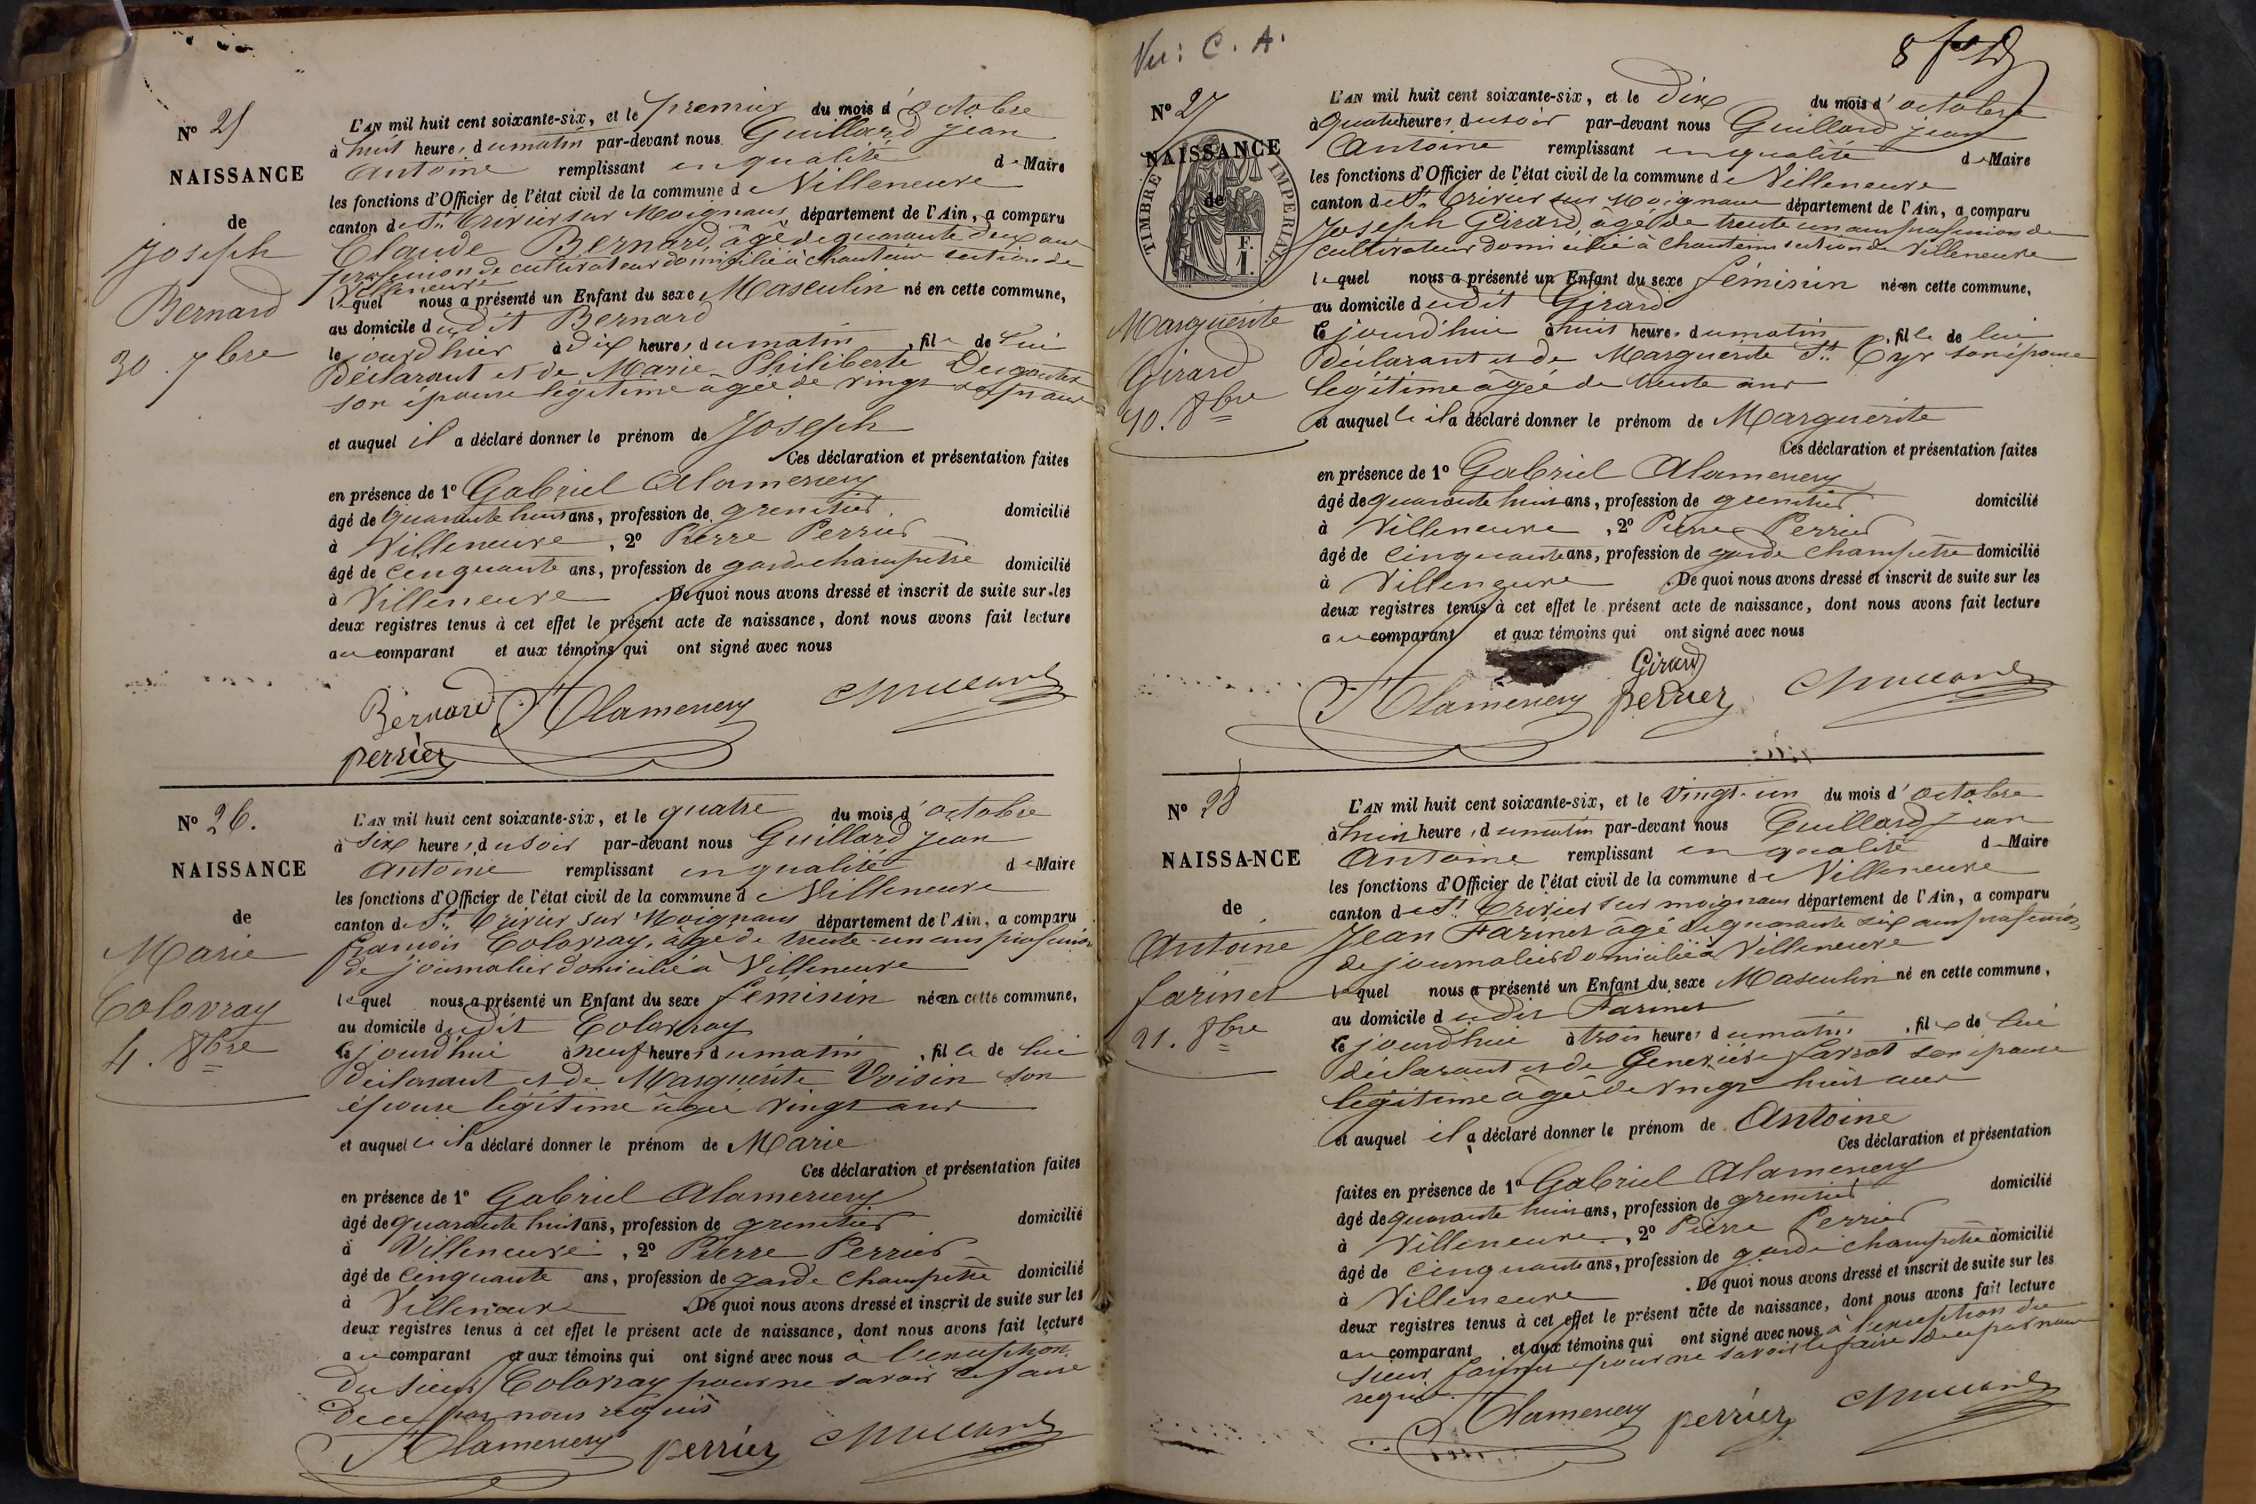 N° 25
NAISSANCE
de
Joseph
Bernard
30. 7bre
L'AN mil huit cent soixante-six, et le premier du mois d'octobre
à huit heures du matin par-devant nous Guillard Jean
Antoine remplissant en qualité de Maire
les fonctions d'Officier de l'état civil de la commune de Villeneuve
canton de St Trivier sur Moignans département de l'Ain, a comparu
Claude Bernard, âgé de quarante deux ans
profession de cultivateur domicilié à Chanteins section de
Villeneuve
lequel nous a présenté un Enfant du sexe Masculin né en cette commune,
au domicile dudit Bernard
le jourd'hier à dix heures du matin, fils de lui
déclarant et de Marie Philiberte
son épouse légitime âgée de vingt sept ans
et auquel il a déclaré donner le prénom de Joseph
Ces déclaration et présentation faites
en présence de 1° Gabriel Alamercery
âgé de quarante huit ans, profession de grenetier domicilié
à Villeneuve, 2° Pierre Perrier
âgé de cinquante ans, profession de garde champêtre domicilié
à Villeneuve. De quoi nous avons dressé et inscrit de suite sur les
deux registres tenus à cet effet le présent acte de naissance, dont nous avons fait lecture
au comparant et aux témoins qui ont signé avec nous
Bernard Alamercery Guillard
perrier
N° 26.
NAISSANCE
de
Marie
Colovray
4. 8bre
L'AN mil huit cent soixante-six, et le quatre du mois d'octobre
à six heures du soir par-devant nous Guillard Jean
Antoine remplissant en qualité de Maire
les fonctions d'Officier de l'état civil de la commune de Villeneuve
canton de St Trivier sur Moignans département de l'Ain, a comparu
françois Colovray, âgé de trente-un ans profession
de journalier domicilié à Villeneuve
lequel nous a présenté un Enfant du sexe féminin née en cette commune,
au domicile dudit Colovray
le jourd'hui à neuf heures du matin, fille de lui
déclarant et de Marguerite Voisin son
épouse légitime âgée vingt ans
et auquelle il a déclaré donner le prénom de Marie
Ces déclaration et présentation faites
en présence de 1° Gabriel Alamercery
âgé de quarante huit ans, profession de grenetier domicilié
à Villeneuve, 2° Pierre Perrier
âgé de cinquante ans, profession de garde champêtre domicilié
à Villeneuve. De quoi nous avons dressé et inscrit de suite sur les
deux registres tenus à cet effet le présent acte de naissance, dont nous avons fait lecture
au comparant et aux témoins qui ont signé avec nous à l'exception
du sieur Colovray pour ne savoir le faire
de ce par nous requis
Alamercery perrier Guillard
Vu: C. A.
8
N° 27
NAISSANCE
de
TIMBRE IMPERIAL
F.
1.
Marguerite
Girard
10. 8bre
L'AN mil huit cent soixante-six, et le dix du mois d'octobre
à quatre heures du soir par-devant nous Guillard Jean
Antoine remplissant en qualité de Maire
les fonctions d'Officier de l'état civil de la commune de Villeneuve
canton de St Trivier sur Moignans département de l'Ain, a comparu
Joseph Girard, âgé de trente un ans profession de
cultivateur domicilié à Chanteins section de Villeneuve
lequel nous a présenté un Enfant du sexe féminin née en cette commune,
au domicile dudit Girard
le jourd'hui à huit heures du matin, fille de lui
déclarant et de Marguerite St Cyr son épouse
légitime âgée de trente ans
et auquelle il a déclaré donner le prénom de Marguerite
Ces déclaration et présentation faites
en présence de 1° Gabriel Alamercery
âgé de quarante huit ans, profession de grenetier domicilié
à Villeneuve, 2° Pierre Perrier
âgé de cinquante ans, profession de garde champêtre domicilié
à Villeneuve. De quoi nous avons dressé et inscrit de suite sur les
deux registres tenus à cet effet le présent acte de naissance, dont nous avons fait lecture
au comparant et aux témoins qui ont signé avec nous
Girard
Alamercery perrier Guillard
N° 28
NAISSANCE
de
Antoine
farinet
21. 8bre
L'AN mil huit cent soixante-six, et le vingt-un du mois d'octobre
à huit heures du matin par-devant nous Guillard Jean
Antoine remplissant en qualité de Maire
les fonctions d'Officier de l'état civil de la commune de Villeneuve
canton de St Trivier sur moignans département de l'Ain, a comparu
Jean Farinet âgé de quarante six ans profession
de journalier domicilié à Villeneuve
lequel nous a présenté un Enfant du sexe Masculin né en cette commune,
au domicile dudit Farinet
le jourd'hui à trois heures du matin, fils de lui
déclarant et de Geneviève son épouse
légitime âgée de vingt huit ans
et auquel il a déclaré donner le prénom de Antoine
Ces déclaration et présentation
faites en présence de 1° Gabriel Alamercery
âgé de quarante huit ans, profession de grenetier domicilié
à Villeneuve, 2° Pierre Perrier
âgé de cinquante ans, profession de garde champêtre domicilié
à Villeneuve. De quoi nous avons dressé et inscrit de suite sur les
deux registres tenus à cet effet le présent acte de naissance, dont nous avons fait lecture
au comparant et aux témoins qui ont signé avec nous à l'exception du
sieur farinet pour ne savoir le faire de ce par nous
requis
Alamercery perrier Guillard